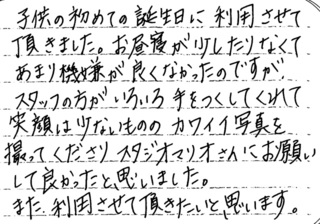 子供の初めての誕生日に利用させて
頂きました。お昼寝が少したりなくて
あまり機嫌が良くなかったのですが、
スタッフの方がいろいろ手をつくしてくれて
笑顔は少ないものの カワイイ写真を
撮ってくださり スタジオマリオさんにお願い
して良かったと、思いました。
また、利用させて頂きたいと思います。